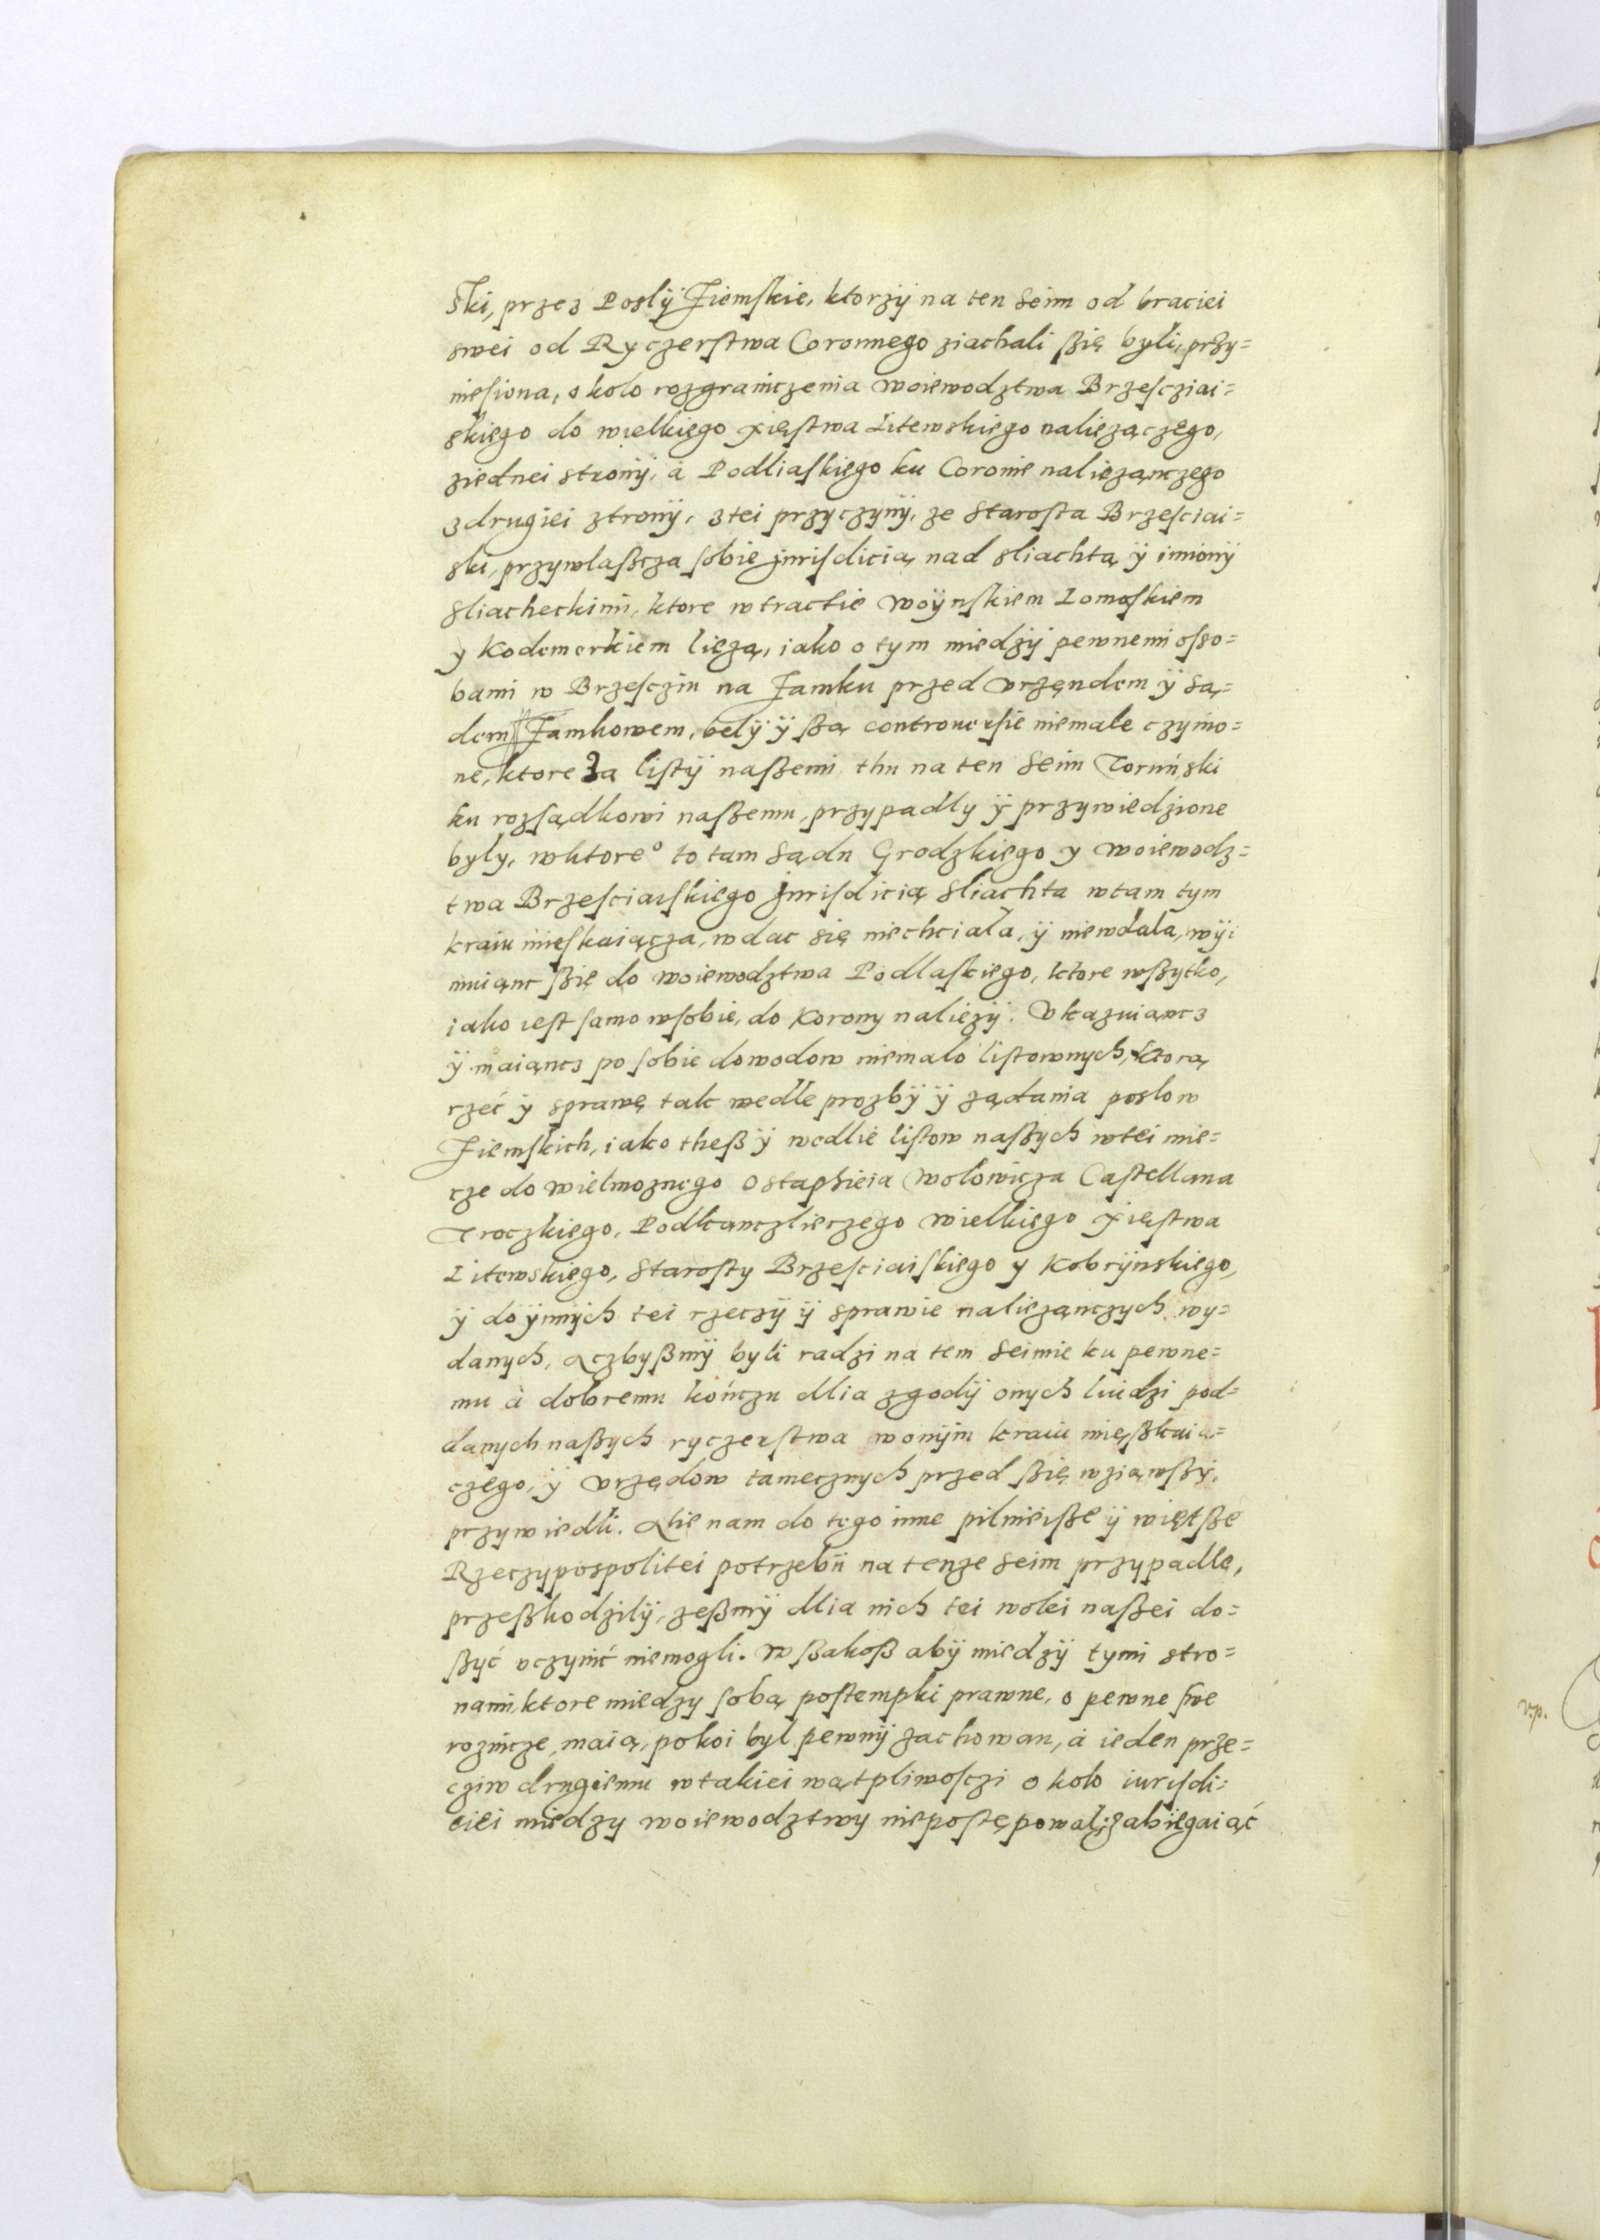 ski, przez Poslÿ Ziemskie, ktorzÿ na ten Seim od braciei
swei od Ryczerstwa Coronnego ziachali ßię byli, przy=
niesiona, okolo rozgraniczenia woiewodztwa Brzescziai=
skiego do wielkięgo xięstwa Litewskiego naliezączego,
ziednei stronÿ, à Podliaskięgo ku Coronie naliezanczego
zdrugiei ztronÿ, ztei przyczynÿ, ze Starosta Brzesciai=
ski, przywlaßcza sobie jurisdicią nad sliachtą ÿ imionÿ
Sliacheckimi, ktore wtractie Woÿnskiem Lomaskiem
y Kodemerkiem liezą, iako o tym miedzÿ pewnemi osso=
bami w Brzescziu na Zamku przed vrzęndem ÿ Są=
dem Zamkowem, belÿ ÿ ßą controuersie niemale czynio=
ne, ktore za listÿ naßemi thu na ten Seim Toruński
ku rozsądkowi naßemu, przypadly ÿ przywiedzione
byly, wktore° to tam Sądu Grodzkiego y woiewodz=
twa Brzesciaiskiego jurisdicią Sliachta wtam tym
kraiu mieskaiącza, wdac się niechciala, ÿ niewdala, wÿi
muiąnc ßię do woiewodztwa Podlaskiego, ktore wßytko,
iako iest samo wsobie, do Korony naliezÿ. Vkazuiancz
ÿ maiąncz po sobie dowodow niemalo listownych, ktorą
rzeć ÿ sprawę tak wedle prozbÿ ÿ ządania poslow
Ziemskich, iako theß ÿ wedlie listow naßych wtei mie=
cze do wielmoznego Ostaphieia Wolowicza Castellana
Troczkiego, Podkanczlieczego wielkięgo xięstwa
Litewskięgo, Starosty Brzesciaiskięgo y Kobrÿnskięgo,
ÿ do ÿnnÿch tei rzeczÿ ÿ sprawie naliezanczych wy=
danych, Aczbyßmÿ byli radzi na tem Seimie ku pewne=
mu à dobremu kończu dlia zgodÿ onych luidzi pod=
danych naßych ryczerstwa wonÿm kraiu mięßkaią=
czego, ÿ vrzędow tamecznych przed ßię wziąwßÿ,
przywiedli. Alie nam do tego inne pilnieißę ÿ więtße
Rzeczypospolitei potrzebÿ na tenze Seim przypadle,
przeßkodzilÿ, zeßmÿ dlia nich tei wolei naßei do=
ßyć vczynić niemogli. Wßakoß abÿ miedzÿ tymi stro=
nami, ktore miedzy sobą postempki prawne, o pewne swe
roznicze maią, pokoi byl pewnÿ zachowan, à ieden prze=
cziw drugiemu wtakiei wątpliwosczi okolo iurisdi=
ciei miedzy woiewodztwy niepostępowal, zabiegaiąć
v.p.